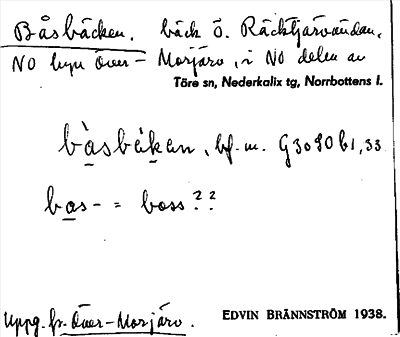 Båsbäcken. bäck Ö. Räcktjärvändan,
NO byn Över-Morjärv, i NO delen av
Töre sn, Nederkalix tg, Norrbottens l.
bàsbä́kan, bf. m. G3090b1,33
bas- = boss??
Uppg. fr. Över-Morjärv.
EDVIN BRÄNNSTRÖM 1938.